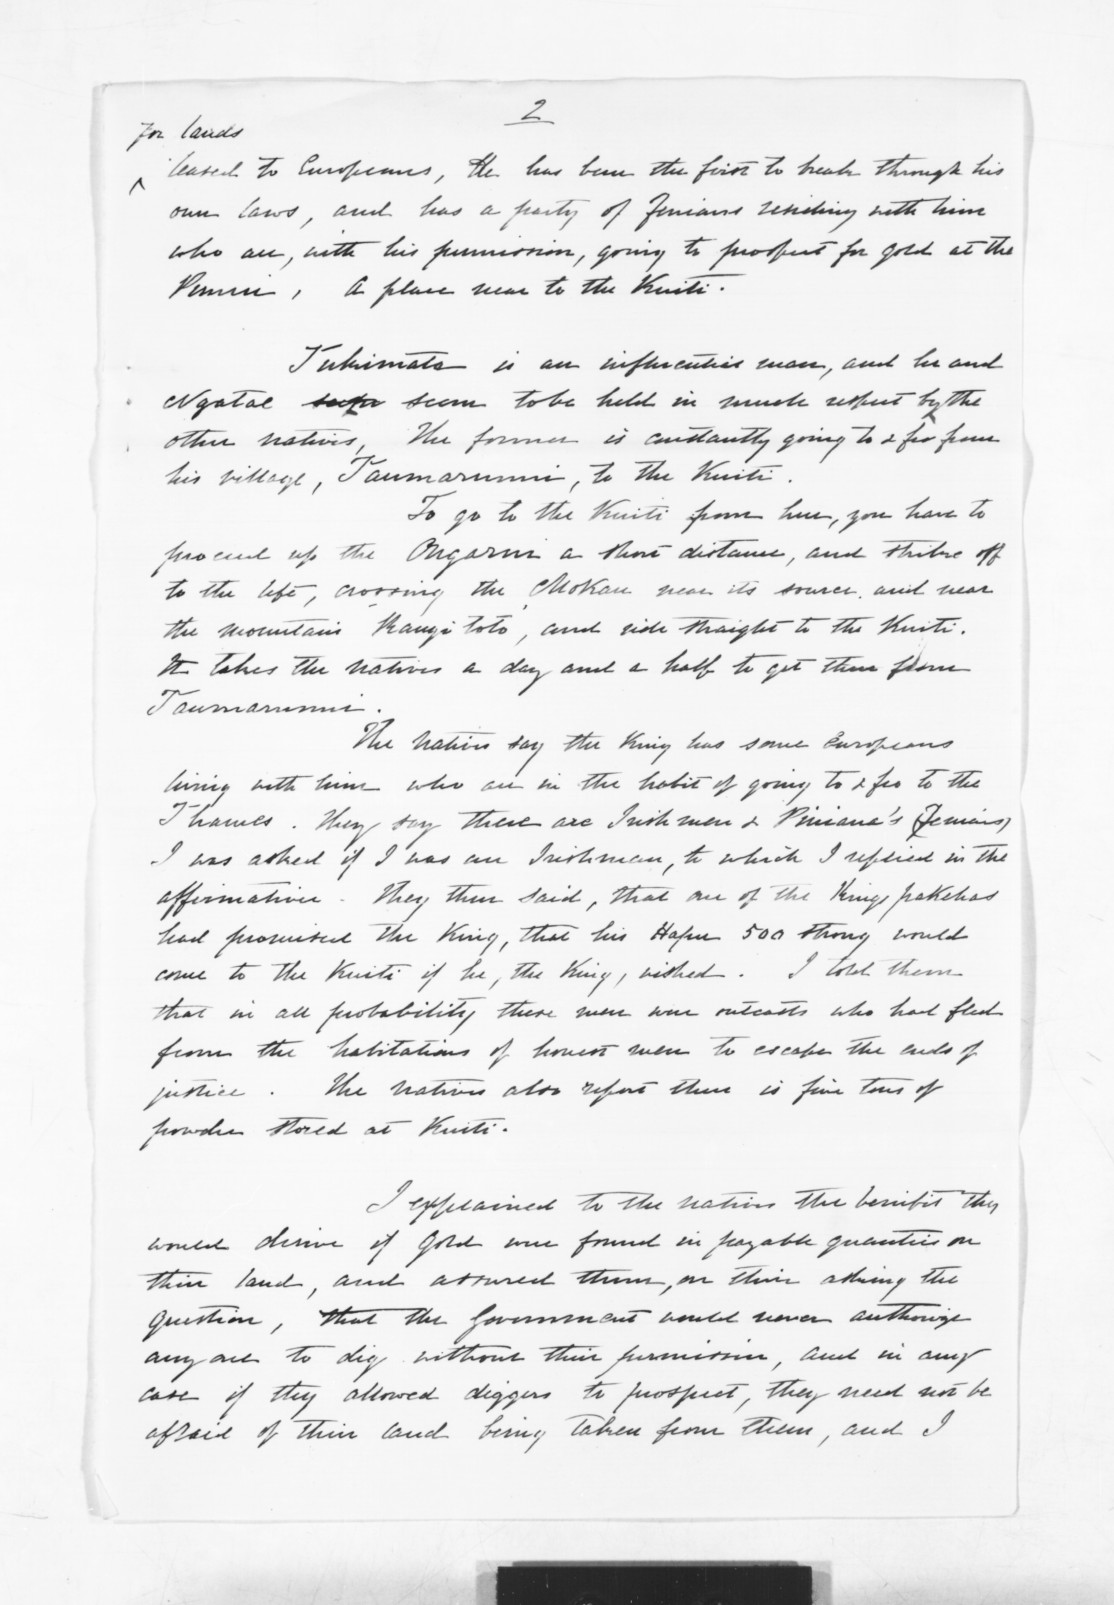 2
for lands
leased to Europeans, He has been the first to break through his
own laws, and has a party of Fenians residing with him
who are, with his permission, going to prospect for gold at the
a place near to the Kuiti.
Tukimata is an influential man, and he and
Ngatae seem to be held in much respect by the
other natives, The former is constantly going to & fro from
his village, Taumarunui, to the Kuiti.
To go to the Kuiti from here, you have to
proceed up the Ongarui a short distance, and strike off
to the left, crossing the Mokau near its source and near
the mountain "Rangitoto", and ride straight to the Kuiti.
It takes the natives a day and a half to get there from
Taumarunui.
The natives say the King has some Europeans
living with him who are in the habit of going to & fro to the
Thames. They say these are Irishmen & Piniana's (Fenians)
I was asked if I was an Irishman, to which I replied in the
affirmative. They then said, that one of the Kings pakehas
had promised the King, that his Hapu 500 strong would
come to the Kuiti if he, the King, wished. I told them
that in all probability these men were outcasts who had fled
from the habitations of honest men to escape the ends of
justice. The natives also report there is five tons of
powder stored at Kuiti.
I explained to the natives the benifit they
would derive if Gold were found in payable quantities on
their land, and assured them, on their asking the
question, that the Government would never authorize
any one to dig without their permission, and in any
case if they allowed diggers to prospect, they need not be
afraid of their land being taken from them, and I